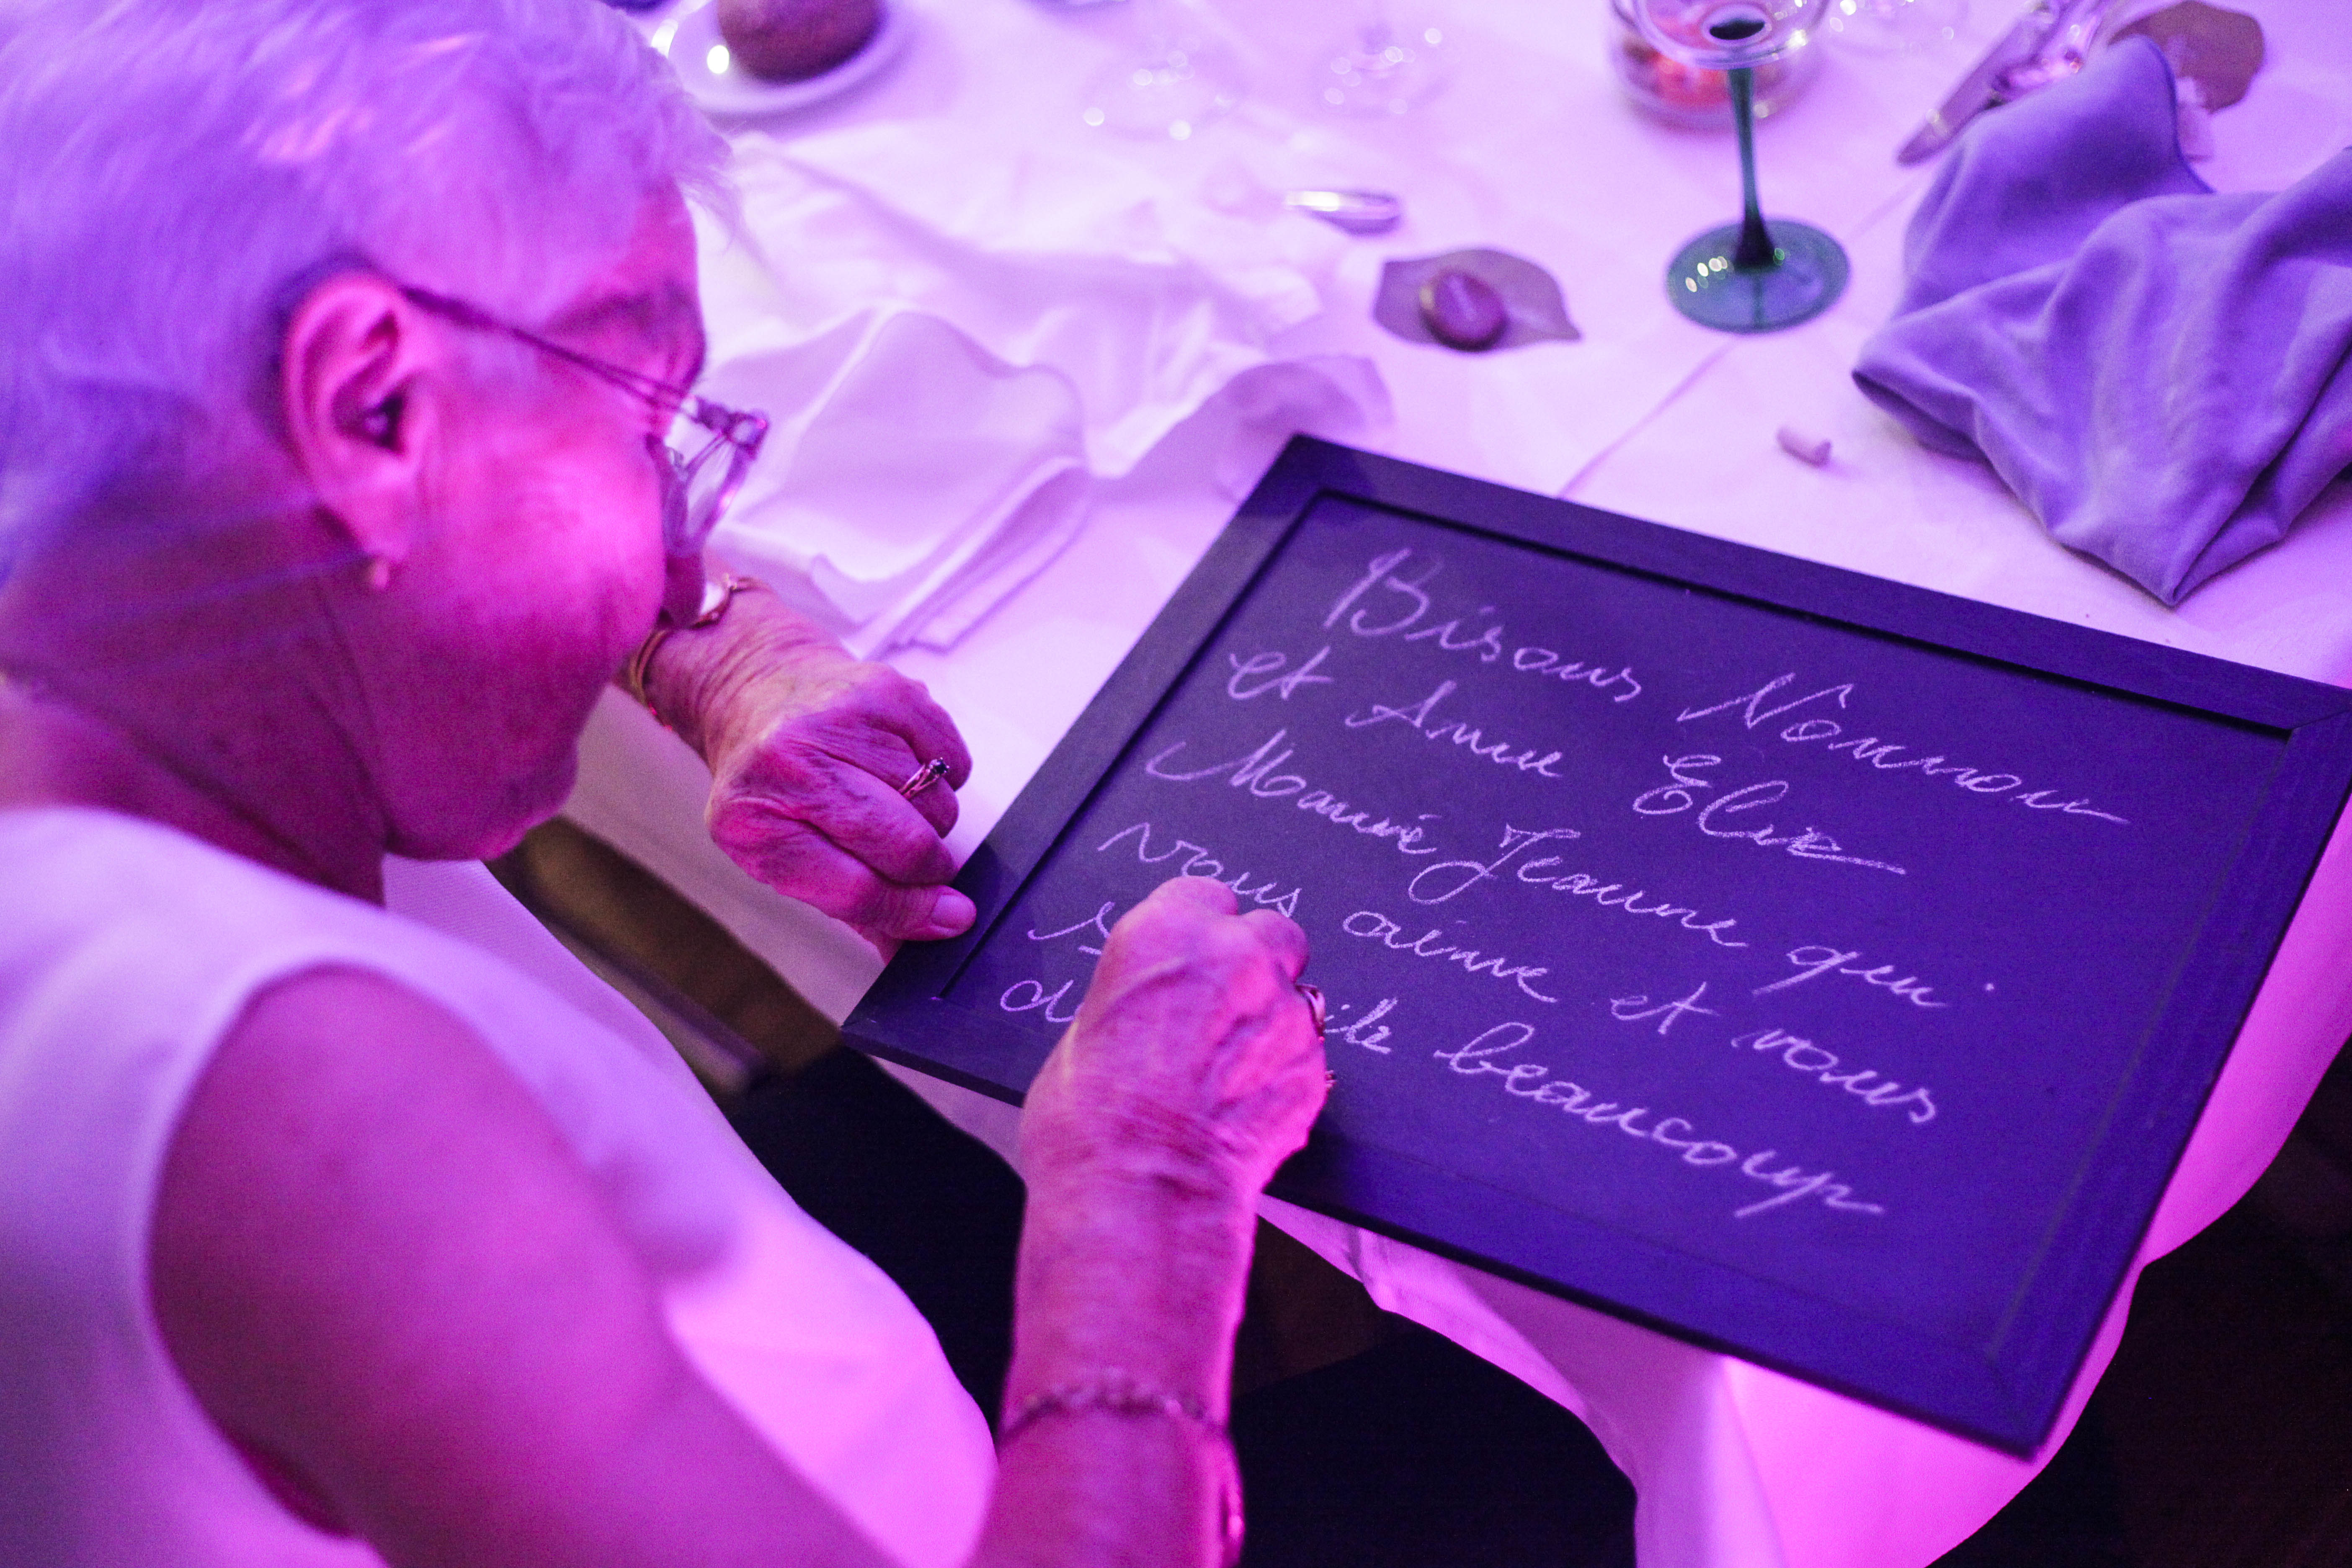 Bisous Nônnon
et Anne Elise
Mamie Jeanne qui
vous aime et vous
beaucoup